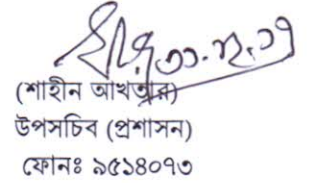 (শাহীন আখতার)
উপসচিব (প্রশাসন)
ফোনঃ ৯৫১৪০৭৩